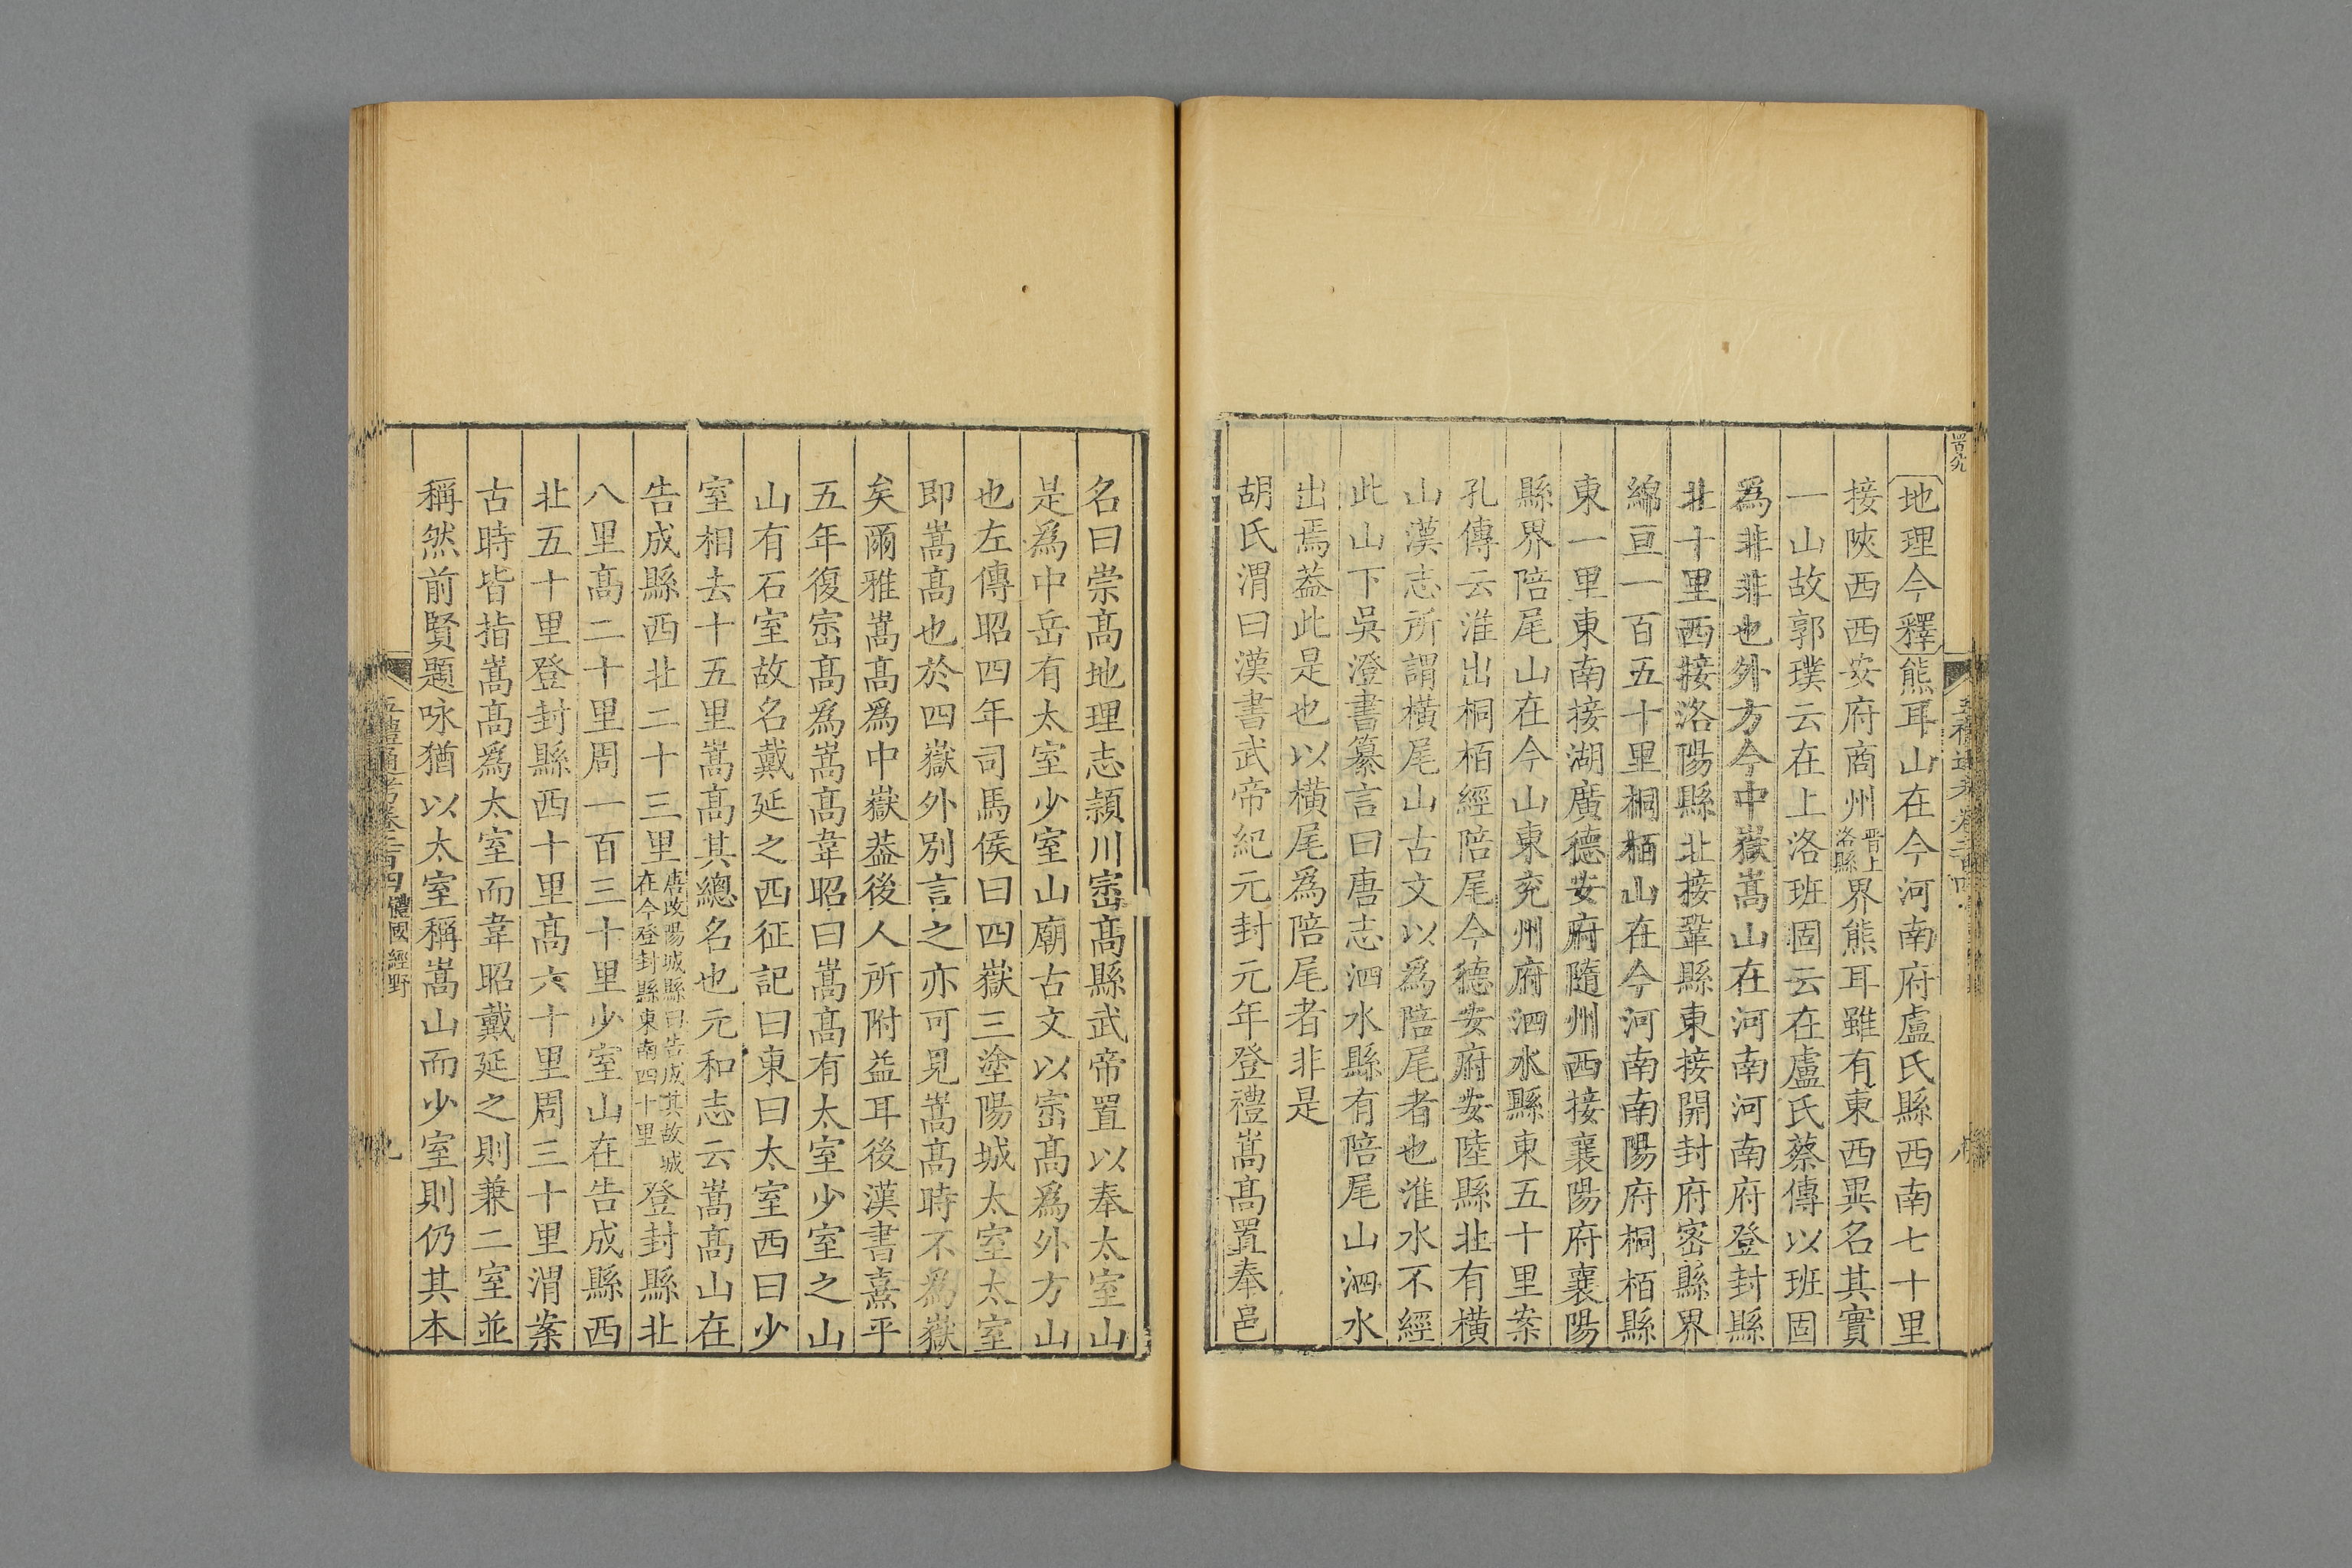 地理今釋熊耳山在今河南府盧氏縣西南七十里
接陝西西安府商州晋上洛縣界熊耳雖有東西異名其實
一山故郭璞云在上洛班固云在盧氏蔡傳以班固
爲非非也外方今中嶽嵩山在河南河南府登封縣
北十里西接洛陽縣北接鞏縣東接開封府密縣界
綿亘一百五十里桐栢山在今河南南陽府桐栢縣
東一里東南接湖廣德安府隨州西接襄陽府襄陽
縣界陪尾山在今山東兖州府泗水縣東五十里案
孔傳云淮出桐栢經陪尾今德安府安陸縣北有橫
山漢志所謂橫尾山古文以爲陪尾者也淮水不經
此山下吳澄書纂言曰唐志泗水縣有陪尾山泗水
出焉葢此是也以橫尾爲陪尾者非是
胡氏渭曰漢書武帝紀元封元年登禮嵩髙置奉邑
名曰崇髙地理志潁川崈髙縣武帝置以奉太室山
是爲中岳有太室少室山廟古文以崈髙爲外方山
也左傳昭四年司馬侯曰四嶽三塗陽城太室太室
即嵩髙也於四嶽外別言之亦可見嵩髙時不爲嶽
矣爾雅嵩髙爲中嶽葢後人所附益耳後漢書熹平
五年復崈髙爲嵩髙韋昭曰嵩髙有太室少室之山
山有石室故名戴延之西征記曰東曰太室西曰少
室相去十五里嵩髙其總名也元和志云嵩髙山在
告成縣西北二十三里唐改陽城縣曰告成其故城在今登封縣東南四十里登封縣北
八里髙二十里周一百三十里少室山在告成縣西
北五十里登封縣西十里髙六十里周三十里渭案
古時皆指嵩髙爲太室而韋昭戴延之則兼二室並
稱然前賢題咏猶以太室稱嵩山而少室則仍其本
五禮通考卷二百四 體國經野 九